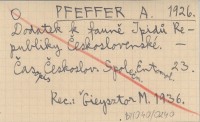 PFEFFER A. 1926.
Dodatek k fauně Ipidů Re-
publiky Československé. —
Čas. Českoslov. Spol. Entomol. 23.
Rec.: Gieysztor M. 1936.